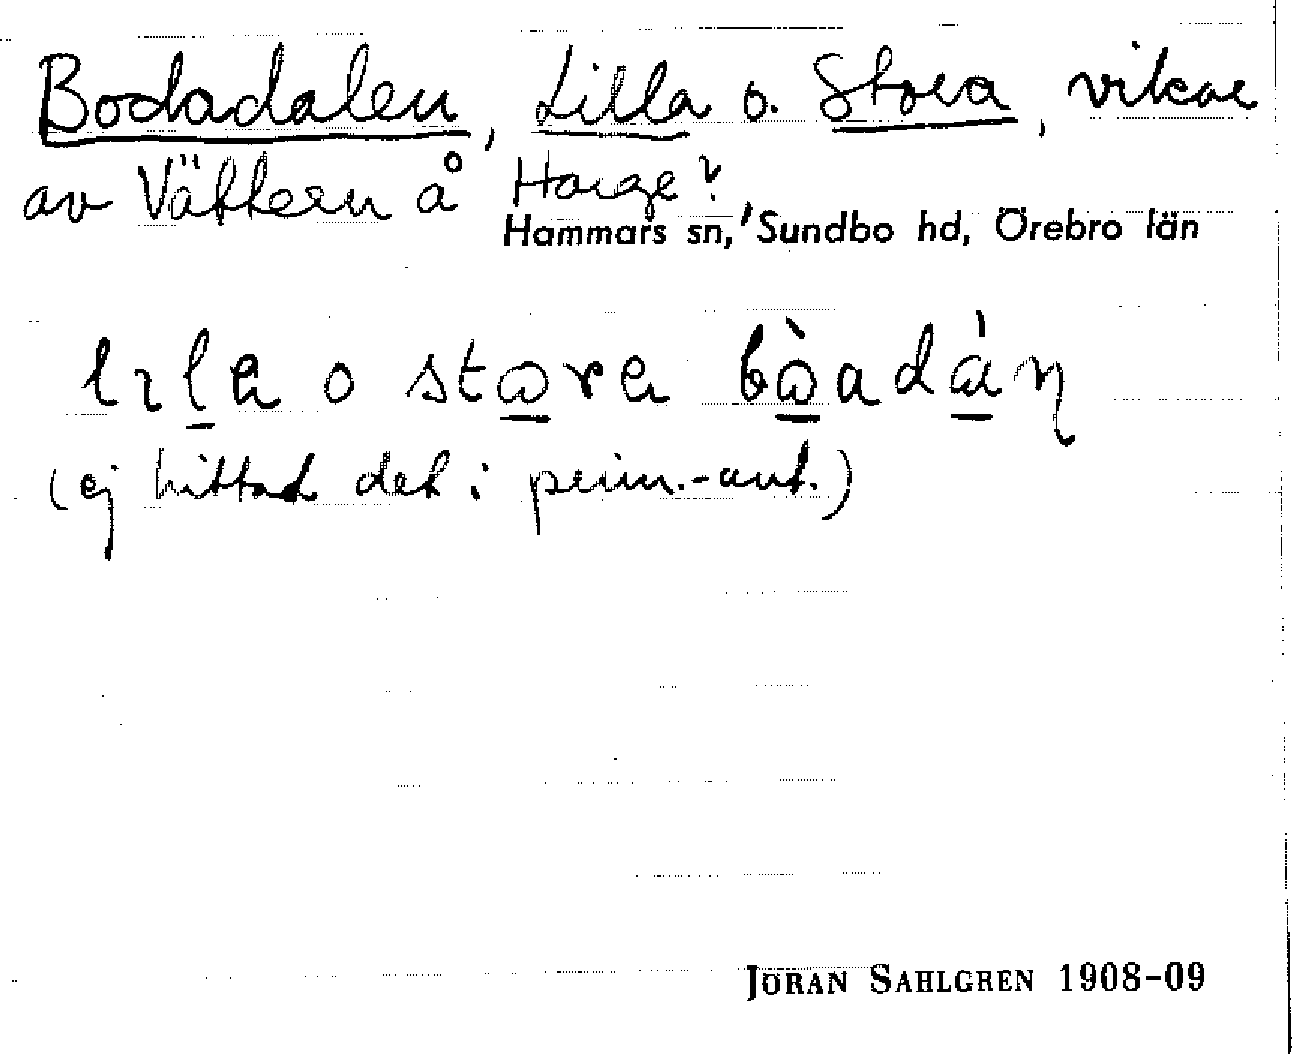 Bodadalen, Lilla o. Stora, vikar
av Vättern å Harge?,
Hammars sn, Sundbo hd, Örebro län
(ej hittat det i prim.-ant.)
JÖRAN SAHLGREN 1908-09